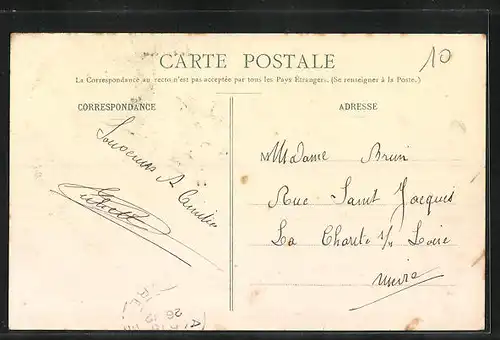 CARTE POSTALE
10
La Correspondance au recto n'est pas acceptée par tous les Pays Étrangers. (Se renseigner à la Poste.)
CORRESPONDANCE
ADRESSE
Souvenirs
Madame Brun
Rue Saint Jacques
La Charité s/ Loire